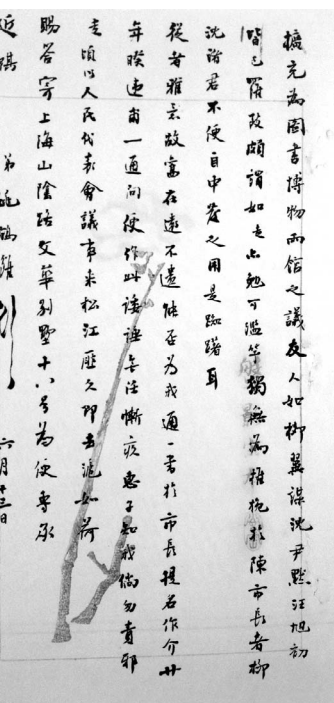 擴充為圖書博物兩館之議友人如柳翼謀沈尹默汪旭初
皆已羅致頗謂如走亦勉可濫竽獨無為推挽於陳市長者柳
沈諸君不便自中發之用是踟躇耳
從者雅意故當在遠不遺能否為我通一書於市長提名作介廿
年暌違甫一通問便作此諈諉無任慚疚惠子知我倘勿責邪
走頃以人民代表會議事來松江匝久即去滬如荷
賜答寄上海山陰路文華別墅十八號為便專承
近祺 弟姚鵷雛 六月十三日